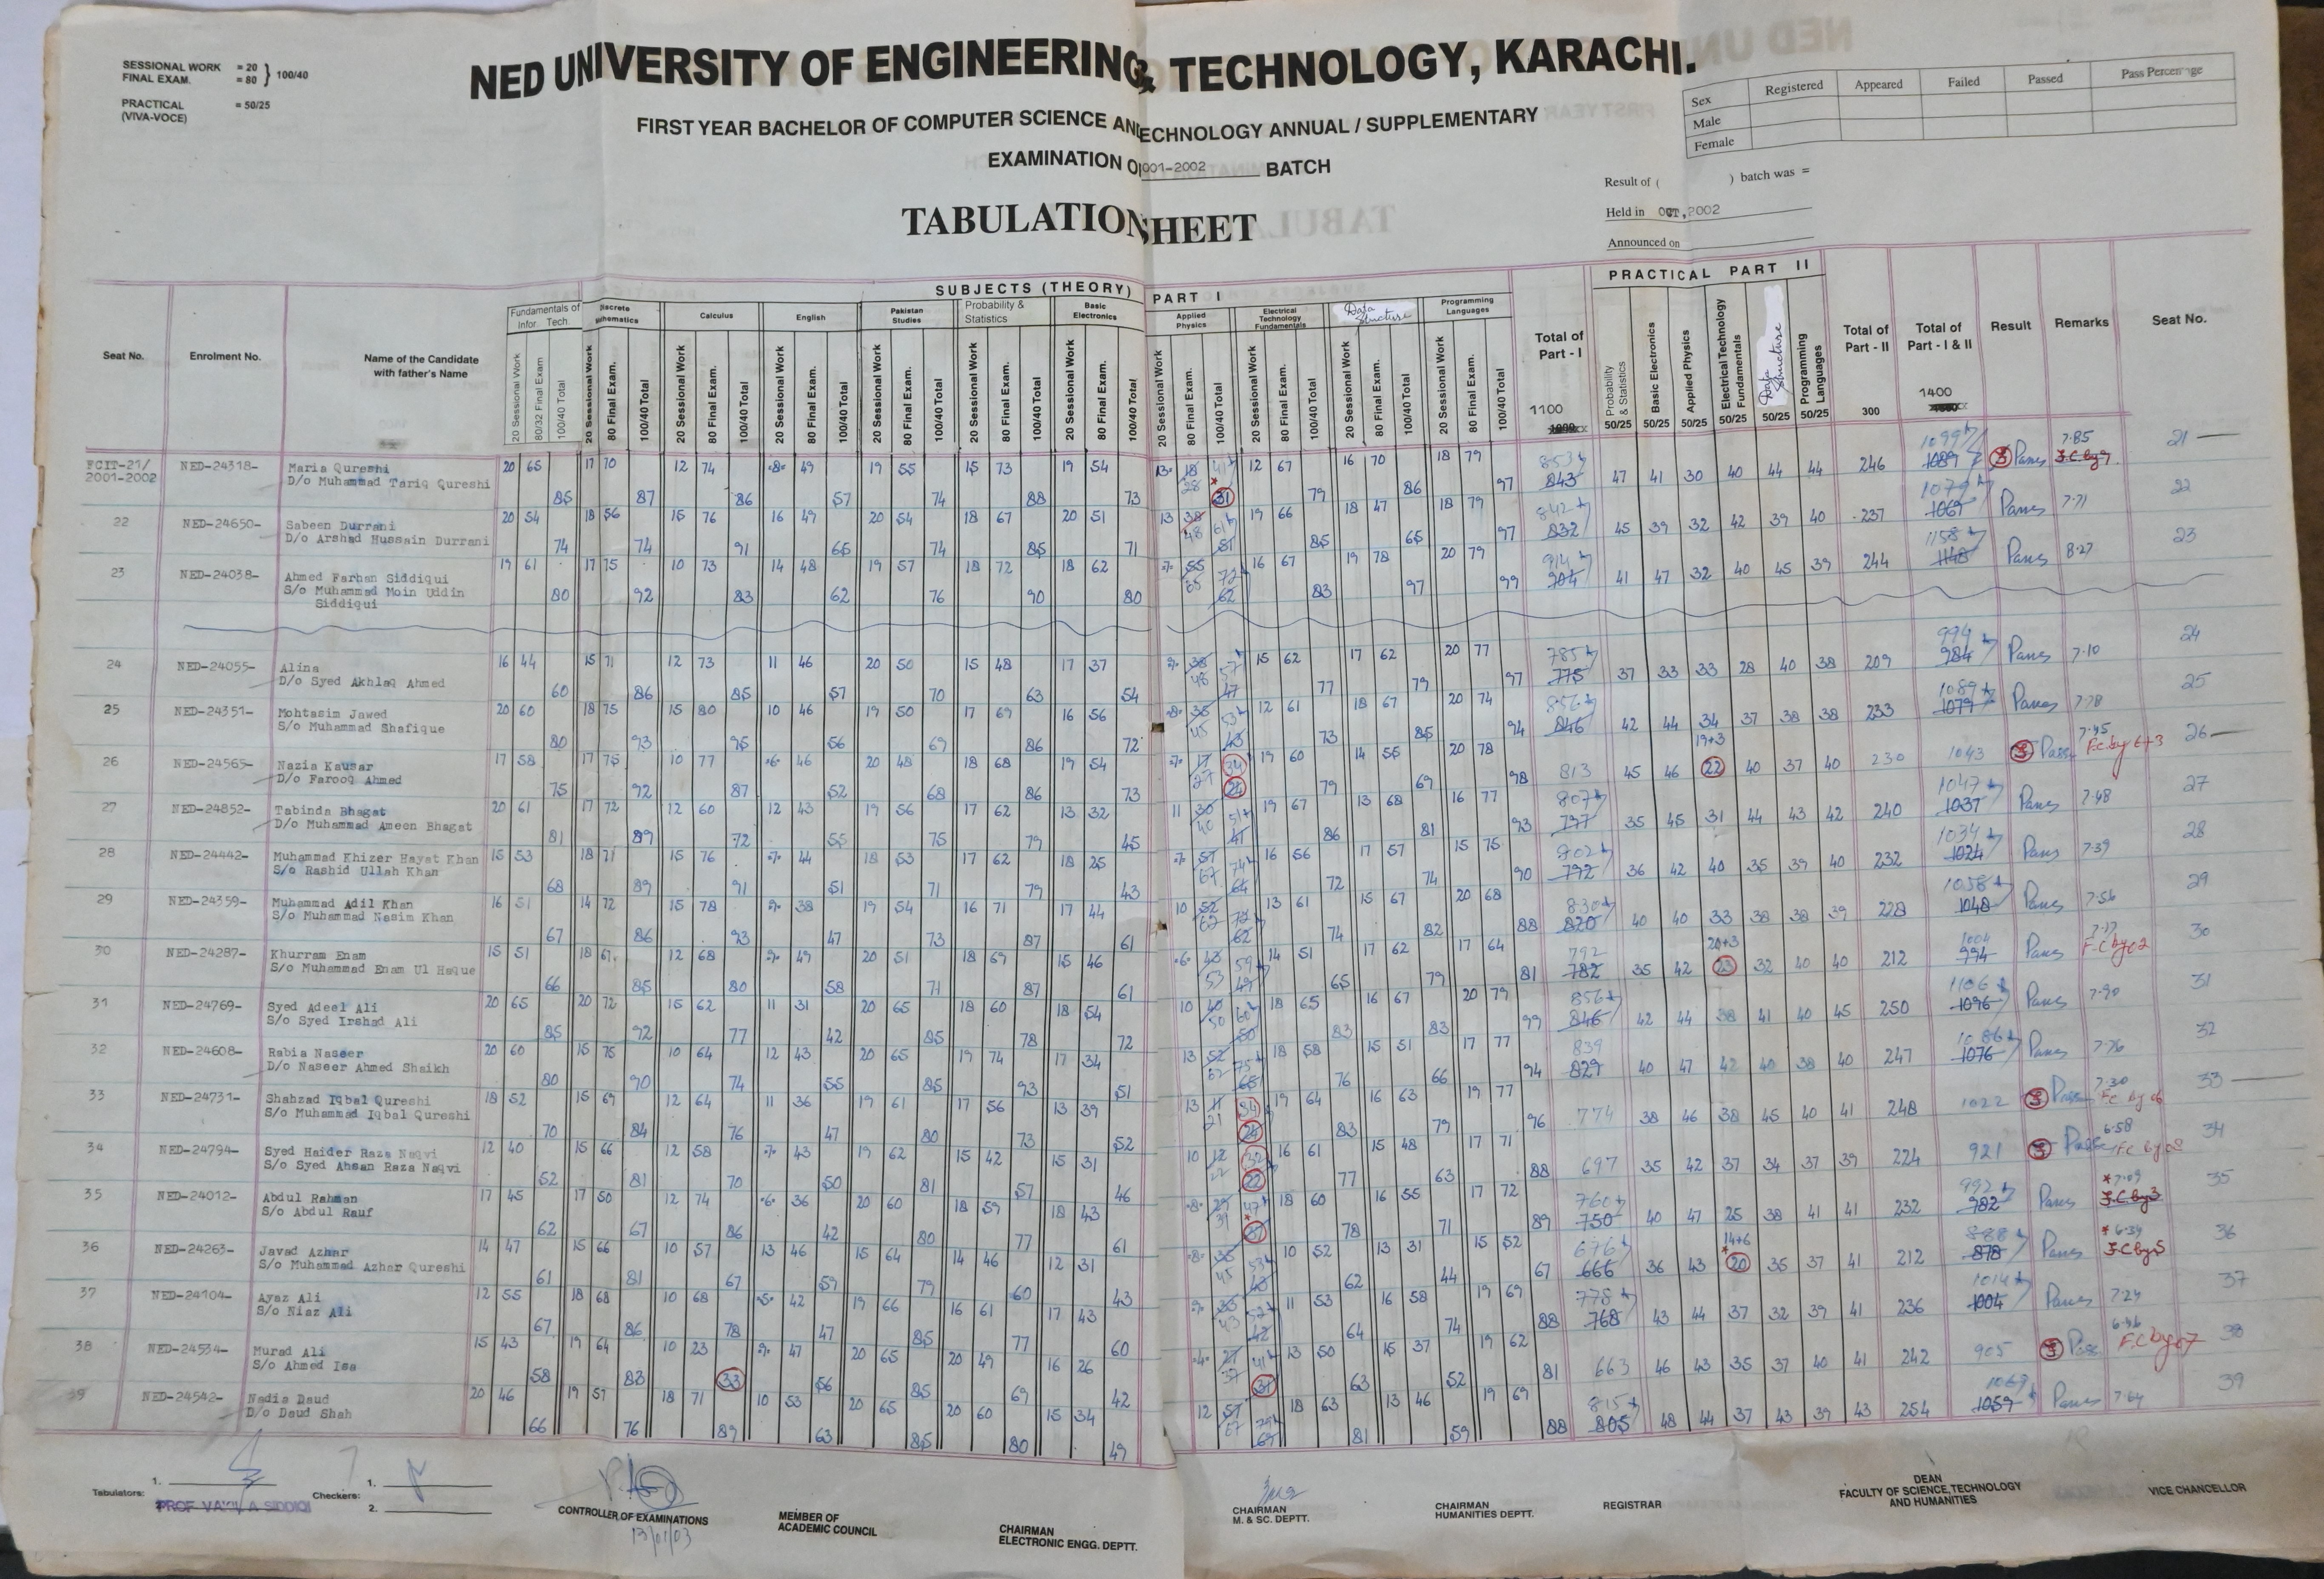 SESSIONAL WORK = 20
FINAL EXAM. = 80 } 100/40
PRACTICAL = 50/25
(VIVA-VOCE)
NED UNIVERSITY OF ENGINEERING & TECHNOLOGY, KARACHI.
FIRST YEAR BACHELOR OF COMPUTER SCIENCE AN ECHNOLOGY ANNUAL / SUPPLEMENTARY
EXAMINATION O 001-2002 BATCH
TABULATION SHEET
Sex Registered Appeared Failed Passed Pass Percentage
Male
Female
Result of ( ) batch was =
Held in OCT, 2002
Announced on
SUBJECTS (THEORY) PART I
PRACTICAL PART II
Seat No. Enrolment No. Name of the Candidate with father's Name
Fundamentals of Infor. Tech.
Discrete Mathematics
Calculus
English
Pakistan Studies
Probability & Statistics
Basic Electronics
Applied Physics
Electrical Technology Fundamentals
Data Structure
Programming Languages
Total of Part - I 1100
Probability & Statistics 50/25
Basic Electronics 50/25
Applied Physics 50/25
Electrical Technology Fundamentals 50/25
Data Structure 50/25
Programming Languages 50/25
Total of Part - II 300
Total of Part - I & II 1400
Result Remarks Seat No.
20 Sessional Work 80/32 Final Exam 100/40 Total
20 Sessional Work 80 Final Exam. 100/40 Total
FCIT-21/ 2001-2002 NED-24318- Maria Qureshi
D/o Muhammad Tariq Qureshi
20 65 85 17 70 87 12 74 86 8 49 57 19 55 74 15 73 88 19 54 73 13 18 28 41 31 12 67 79 16 70 86 18 79 97 853 843 47 41 30 40 44 44 246 1099 1089 Pass 7.85 21
22 NED-24650- Sabeen Durrani
D/o Arshad Hussain Durrani
20 54 74 18 56 74 15 76 91 16 49 65 20 54 74 18 67 85 20 51 71 13 38 48 61 51 19 66 85 18 47 65 18 79 97 842 832 45 39 32 42 39 40 237 1079 1069 Pass 7.71 22
23 NED-24038- Ahmed Farhan Siddiqui
S/o Muhammad Moin Uddin
Siddiqui
19 61 80 17 75 92 10 73 83 14 48 62 19 57 76 18 72 90 18 62 80 7 55 65 72 62 16 67 83 19 78 97 20 79 99 914 904 41 47 32 40 45 39 244 1158 1148 Pass 8.27 23
24 NED-24055- Alina
D/o Syed Akhlaq Ahmed
16 44 60 15 71 86 12 73 85 11 46 57 20 50 70 15 48 63 17 37 54 9 38 48 57 47 15 62 77 17 62 79 20 77 97 785 775 37 33 33 28 40 38 209 994 984 Pass 7.10 24
25 NED-24351- Mohtasim Jawed
S/o Muhammad Shafique
20 60 80 18 75 93 15 80 95 10 46 56 19 50 69 17 69 86 16 56 72 8 35 45 53 43 12 61 73 18 67 85 20 74 94 856 846 42 44 34 37 38 38 233 1089 1079 Pass 7.78 25
26 NED-24565- Nazia Kausar
D/o Farooq Ahmed
17 58 75 17 75 92 10 77 87 6 46 52 20 48 68 18 68 86 19 54 73 7 17 27 34 24 19 60 79 14 55 69 20 78 98 813 45 46 19+3 22 40 37 40 230 1043 Pass 7.45 F.C by 6+3 26
27 NED-24852- Tabinda Bhagat
D/o Muhammad Ameen Bhagat
20 61 81 17 72 89 12 60 72 12 43 55 19 56 75 17 62 79 13 32 45 11 30 40 51 41 19 67 86 13 68 81 16 77 93 807 797 35 45 31 44 43 42 240 1047 1037 Pass 7.48 27
28 NED-24442- Muhammad Khizer Hayat Khan
S/o Rashid Ullah Khan
15 53 68 18 71 89 15 76 91 7 44 51 18 53 71 17 62 79 18 25 43 7 57 67 74 64 16 56 72 17 57 74 15 75 90 802 792 36 42 40 35 39 40 232 1034 1024 Pass 7.39 28
29 NED-24359- Muhammad Adil Khan
S/o Muhammad Nasim Khan
16 51 67 14 72 86 15 78 93 9 38 47 19 54 73 16 71 87 17 44 61 10 52 62 72 62 13 61 74 15 67 82 20 68 88 830 820 40 40 33 38 38 39 228 1058 1048 Pass 7.56 29
30 NED-24287- Khurram Enam
S/o Muhammad Enam Ul Haque
15 51 66 18 67 85 12 68 80 9 49 58 20 51 71 18 69 87 15 46 61 6 43 53 59 49 14 51 65 17 62 79 17 64 81 792 782 35 42 20+3 23 32 40 40 212 1004 994 Pass 7.17 F.C by 02 30
31 NED-24769- Syed Adeel Ali
S/o Syed Irshad Ali
20 65 85 20 72 92 15 62 77 11 31 42 20 65 85 18 60 78 18 54 72 10 40 50 60 50 18 65 83 16 67 83 20 79 99 856 846 42 44 38 41 40 45 250 1106 1096 Pass 7.90 31
32 NED-24608- Rabia Naseer
D/o Naseer Ahmed Shaikh
20 60 80 15 75 90 10 64 74 12 43 55 20 65 85 19 74 93 17 34 51 13 52 62 75 65 18 58 76 15 51 66 17 77 94 839 829 40 47 42 40 38 40 247 1086 1076 Pass 7.76 32
33 NED-24731- Shahzad Iqbal Qureshi
S/o Muhammad Iqbal Qureshi
18 52 70 15 69 84 12 64 76 11 36 47 19 61 80 17 56 73 13 39 52 13 11 21 34 24 19 64 83 16 63 79 19 77 96 774 38 46 38 45 40 41 248 1022 Pass 7.30 F.C by 06 33
34 NED-24794- Syed Haider Raza Naqvi
S/o Syed Ahsan Raza Naqvi
12 40 52 15 66 81 12 58 70 7 43 50 19 62 81 15 42 57 15 31 46 10 12 22 32 22 16 61 77 15 48 63 17 71 88 697 35 42 37 34 37 39 224 921 Pass 6.58 F.C by 08 34
35 NED-24012- Abdul Rahman
S/o Abdul Rauf
17 45 62 17 50 67 12 74 86 6 36 42 20 60 80 18 59 77 18 43 61 8 29 39 47 37 18 60 78 16 55 71 17 72 89 760 750 40 47 25 38 41 41 232 992 982 Pass 7.09 F.C by 3 35
36 NED-24263- Javad Azhar
S/o Muhammad Azhar Qureshi
14 47 61 15 66 81 10 57 67 13 46 59 15 64 79 14 46 60 12 31 43 8 35 45 53 43 10 52 62 13 31 44 15 52 67 676 666 36 43 14+6 20 35 37 41 212 888 878 Pass 6.34 F.C by 5 36
37 NED-24104- Ayaz Ali
S/o Niaz Ali
12 55 67 18 68 86 10 68 78 5 42 47 19 66 85 16 61 77 17 43 60 9 33 43 52 42 11 53 64 16 58 74 19 69 88 778 768 43 44 37 32 39 41 236 1014 1004 Pass 7.24 37
38 NED-24534- Murad Ali
S/o Ahmed Isa
15 43 58 19 64 83 10 23 33 9 47 56 20 65 85 20 49 69 16 26 42 4 27 37 41 31 13 50 63 15 37 52 19 62 81 663 46 43 35 37 40 41 242 905 Pass 6.46 F.C by 07 38
39 NED-24542- Nadia Daud
D/o Daud Shah
20 46 66 19 57 76 18 71 89 10 53 63 20 65 85 20 60 80 15 34 49 12 57 67 79 69 18 63 81 13 46 59 19 69 88 815 805 48 44 37 43 39 43 254 1069 1059 Pass 7.64 39
Tabulators: 1.
PROF VAKIL A SIDDIQI
Checkers: 1.
2.
CONTROLLER OF EXAMINATIONS
13/01/03
MEMBER OF
ACADEMIC COUNCIL
CHAIRMAN
ELECTRONIC ENGG. DEPTT.
CHAIRMAN
M. & SC. DEPTT.
CHAIRMAN
HUMANITIES DEPTT.
REGISTRAR
DEAN
FACULTY OF SCIENCE, TECHNOLOGY
AND HUMANITIES
VICE CHANCELLOR